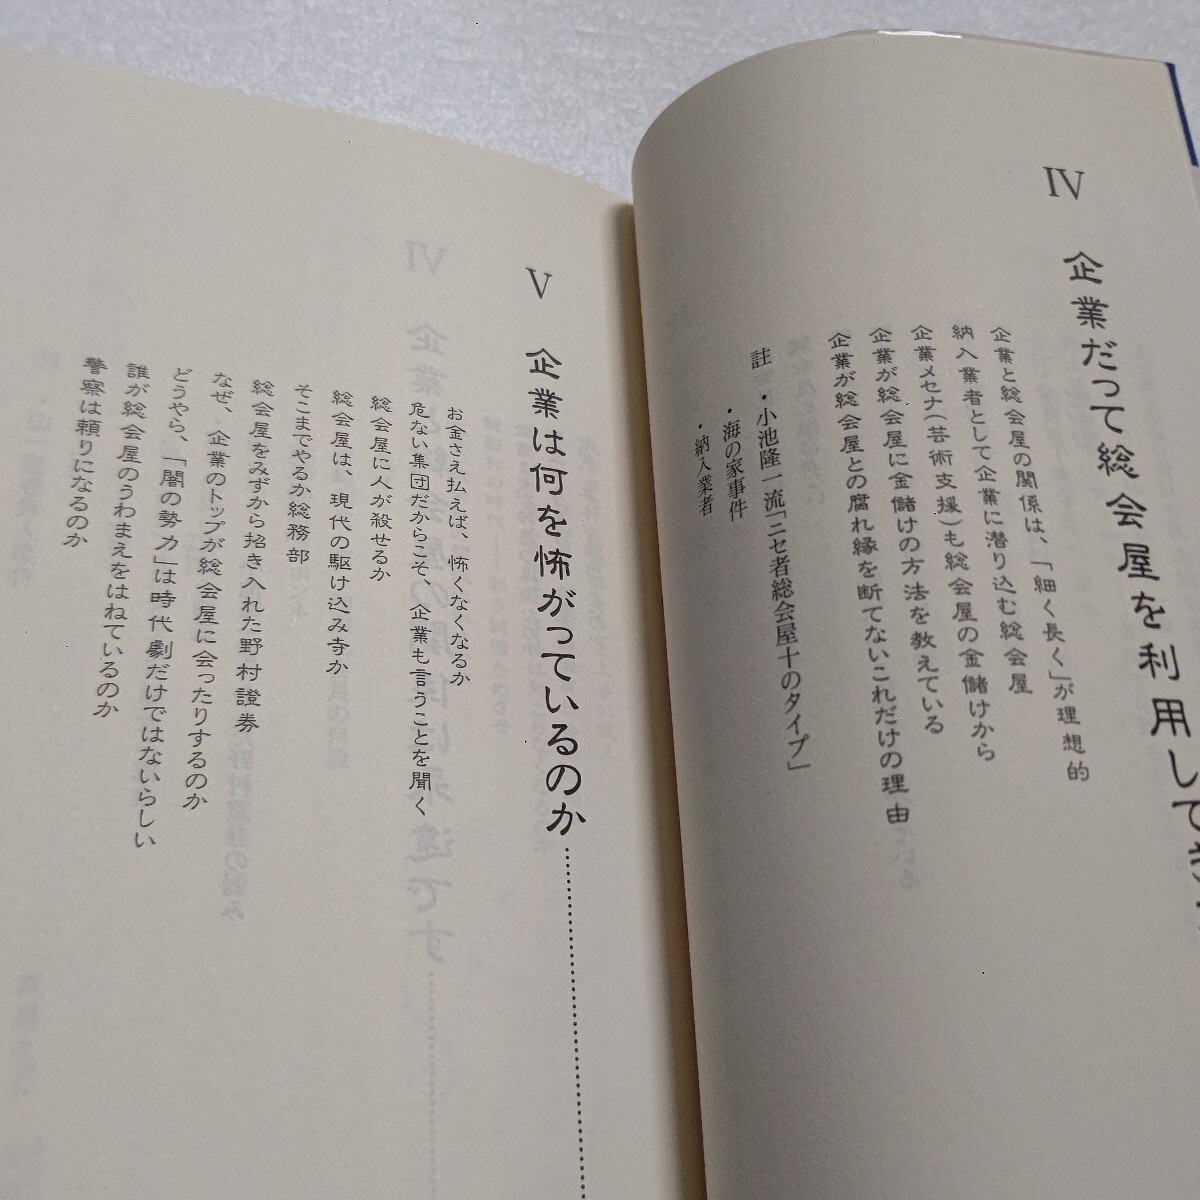 IV
企業だって総会屋を利用して
企業と総会屋の関係は、「細く長く」が理想的
納入業者として企業に潜り込む総会屋
企業メセナ(芸術支援)も総会屋の金儲けから
企業が総会屋に金儲けの方法を教えている
企業が総会屋との腐れ縁を断てないこれだけの理由
註・小池隆一流「ニセ者総会屋十のタイプ」
・海の家事件
・納入業者
V
企業は何を怖がっているのか
お金さえ払えば、怖くなくなるか
危ない集団だからこそ、企業も言うことを聞く
総会屋に人が殺せるか
総会屋は、現代の駆け込み寺か
そこまでやるか総務部
総会屋をみずから招き入れた野村證券
なぜ、企業のトップが総会屋に会ったりするのか
どうやら、「闇の勢力」は時代劇だけではないらしい
誰が総会屋のうわまえをはねているのか
警察は頼りになるのか